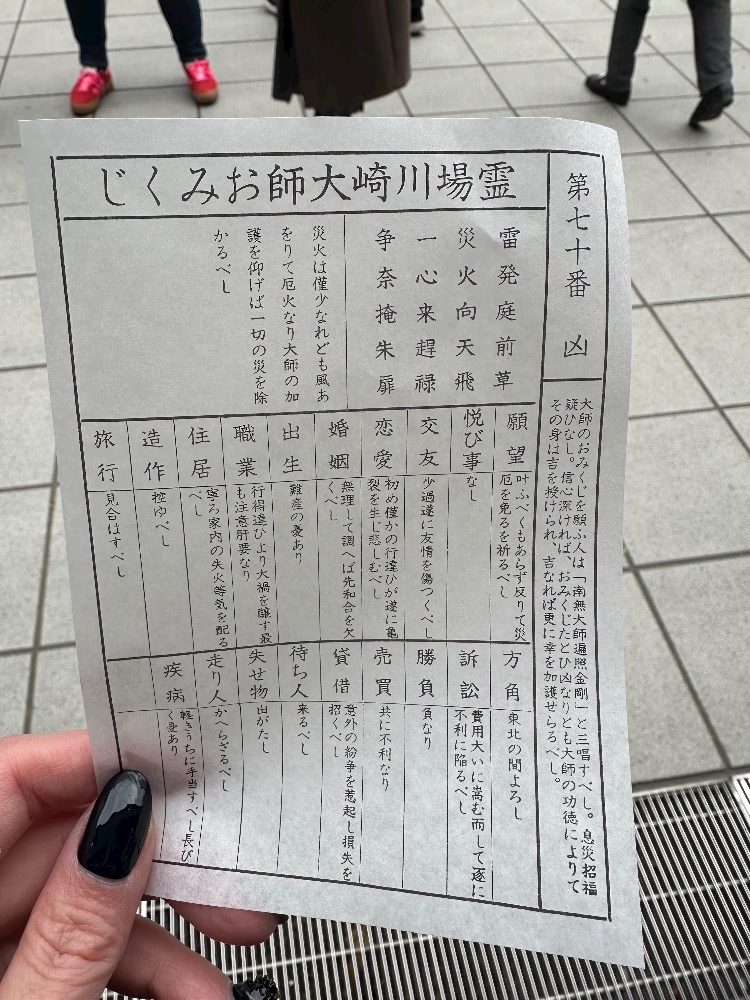 霊場川崎大師おみくじ
第七十番 凶
大師のおみくじを願ふ人は「南無大師遍照金剛」と三唱すべし。息災招福
疑ひなし。信心深ければ、おみくじたとひ凶なりとも大師の功徳によりて
その身は吉を授けられ、吉なれば更に幸を加護せらるべし。
雷発庭前草
災火向天飛
一心来趕禄
争奈掩朱扉
災火は僅少なれども風あ
をりて厄火なり大師の加
護を仰げば一切の災を除
かるべし
願望
叶ふべくもあらず反りて災
厄を免るを祈るべし
悦び事
なし
交友
少過遂に友情を傷つくべし
恋愛
初め僅かの行違ひが遂に亀
裂を生じ悲しむべし
婚姻
無理して調へば先和合を欠
くべし
出生
難産の憂あり
職業
行得違ひより大禍を醸す最
も注意肝要なり
住居
寧ろ家内の失火等気を配る
べし
造作
控ゆべし
旅行
見合はすべし
方角
東北の間よろし
訴訟
費用大いに嵩む而して逐に
不利に陥るべし
勝負
負なり
売買
共に不利なり
貸借
意外の紛争を惹起し損失を
招くべし
待ち人
来るべし
失せ物
出がたし
走り人
かへらざるべし
疾病
軽きうちに手当すべし長び
く憂あり